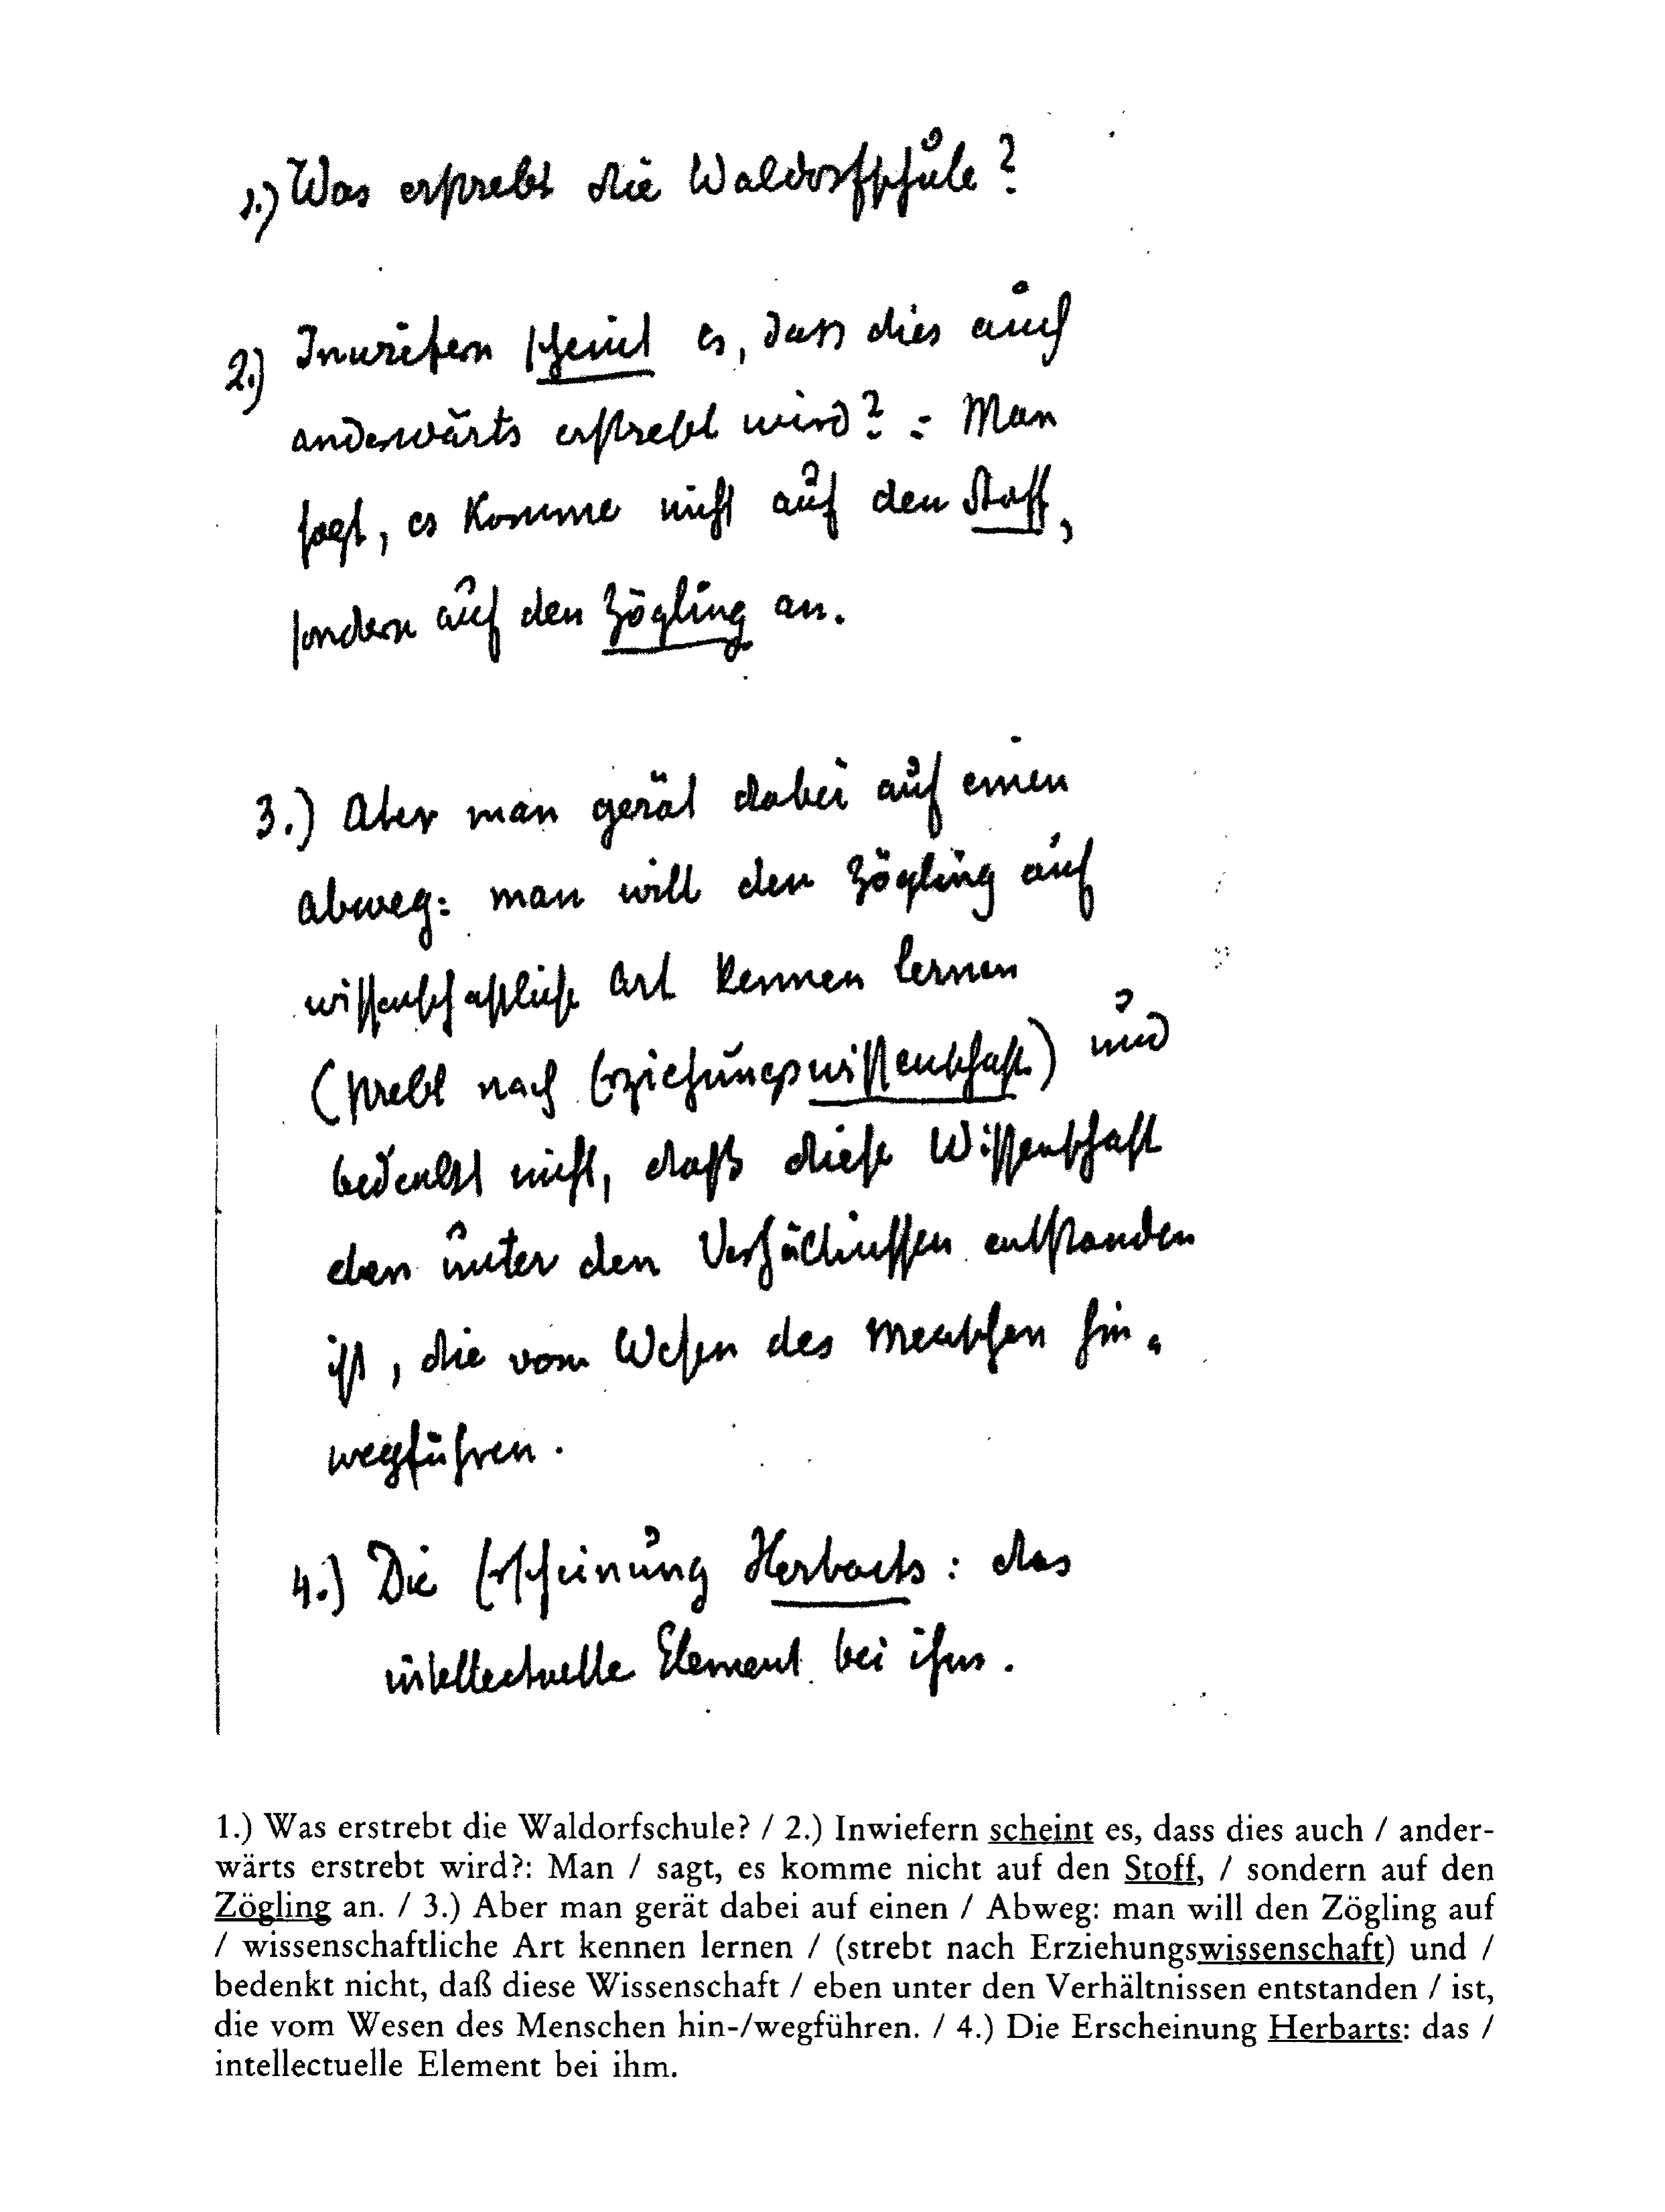 1.) Was erstrebt die Waldorfschule?
2.) Inwiefern scheint es, dass dies auch
anderwärts erstrebt wird?: Man
sagt, es komme nicht auf den Stoff,
sondern auf den Zögling an.
3.) Aber man gerät dabei auf einen
Abweg: man will den Zögling auf
wissenschaftliche Art kennen lernen
(strebt nach Erziehungswissenschaft) und
bedenkt nicht, daß diese Wissenschaft
eben unter den Verhältnissen entstanden
ist, die vom Wesen des Menschen hin-
wegführen.
4.) Die Erscheinung Herbarts: das
intellectuelle Element bei ihm.
1.) Was erstrebt die Waldorfschule? / 2.) Inwiefern scheint es, dass dies auch / ander-
wärts erstrebt wird?: Man / sagt, es komme nicht auf den Stoff, / sondern auf den
Zögling an. / 3.) Aber man gerät dabei auf einen / Abweg: man will den Zögling auf
/ wissenschaftliche Art kennen lernen / (strebt nach Erziehungswissenschaft) und /
bedenkt nicht, daß diese Wissenschaft / eben unter den Verhältnissen entstanden / ist,
die vom Wesen des Menschen hin-/wegführen. / 4.) Die Erscheinung Herbarts: das /
intellectuelle Element bei ihm.